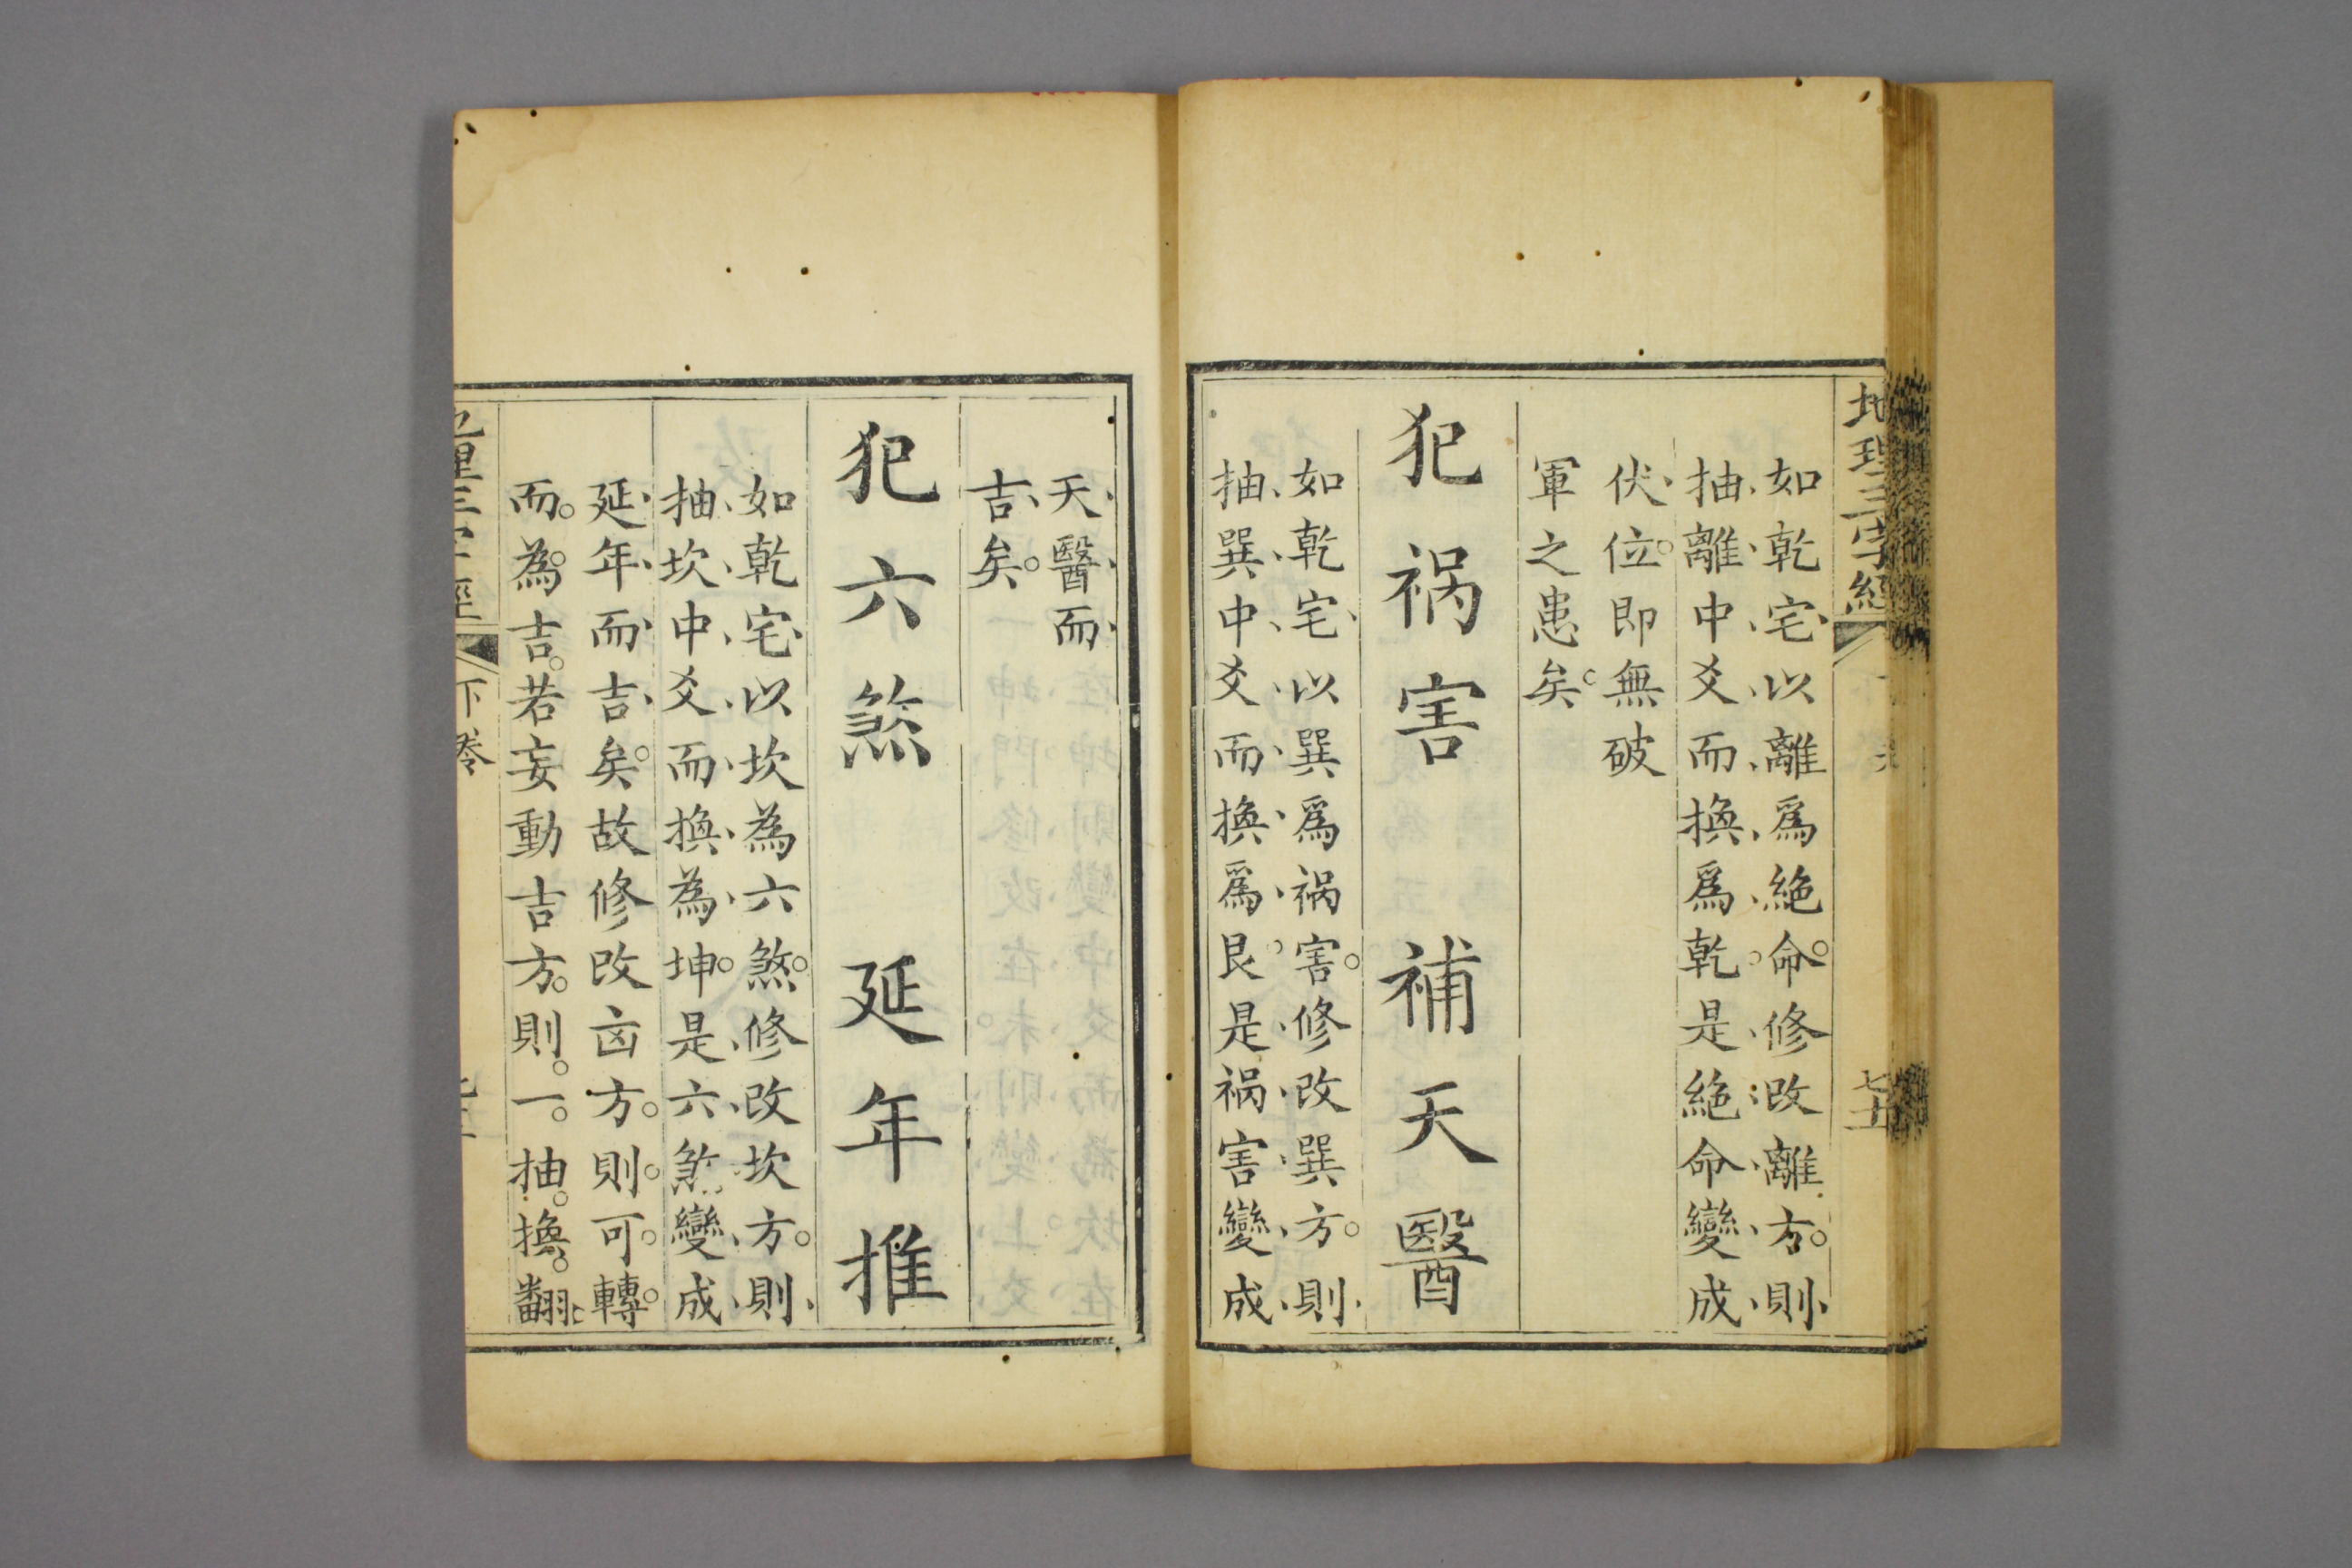 地理三字經
七十五
如乾宅以離爲絶命。修改離方。則
抽離中爻而換爲乾。是絶命變成
伏位。即無破
軍之患矣。
犯禍害 補天醫
如乾宅以巽爲禍害。修改巽方。則
抽巽中爻而換爲艮。是禍害變成
天醫而
吉矣。
犯六煞 延年推
如乾宅以坎為六煞。修改坎方。則
抽坎中爻而換為坤。是六煞變成
延年而吉矣。故修改凶方。則可轉
而為吉。若妄動吉方。則一抽換。翻
下卷